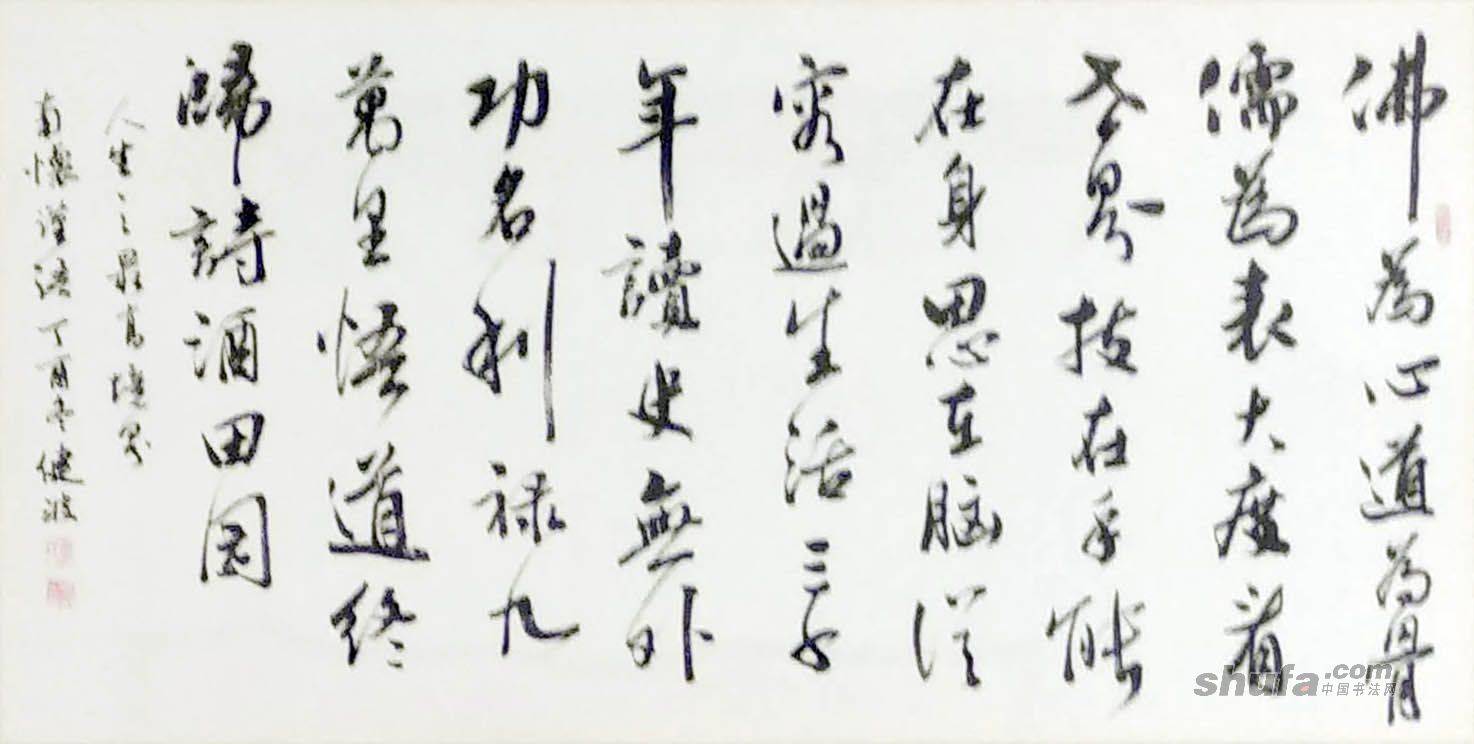 佛為心道為骨
儒為表大度看
世界技在手能
在身思在脑從
容過生活三千
年讀史無外
功名利禄九
萬里悟道終
歸詩酒田園
人生之最高境界
南懷瑾语丁酉冬健波
shufa.com
中国书法网